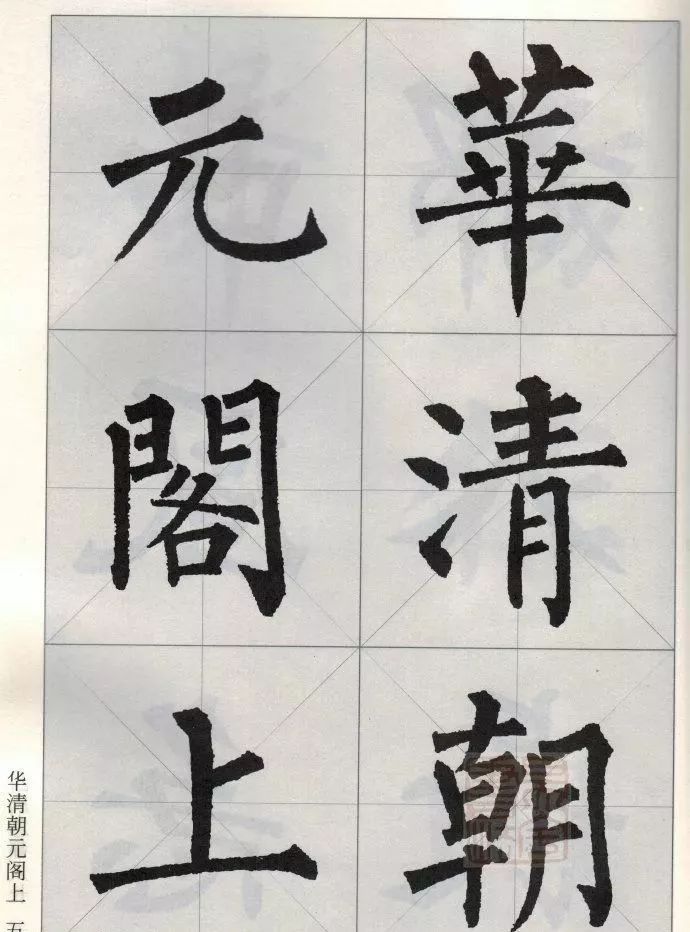 華清朝
元閣上
华清朝元阁上 五